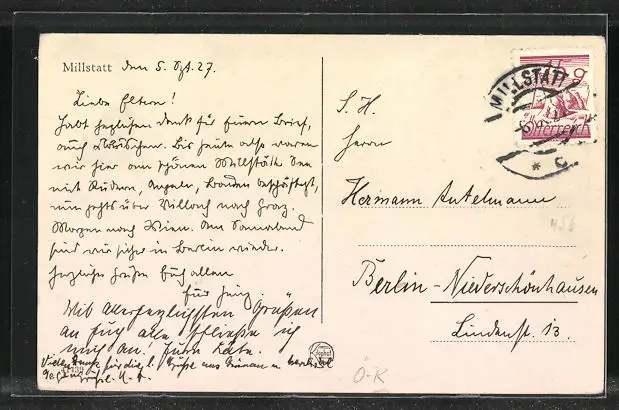 Millstatt den 5. Spt. 27.
Liebe Eltern!
Habt herzlichen Dank für Euern Brief,
auch Bis heute also waren
wir hier am schönen Millstätter See
mit Rudern, Angeln, Baden beschäftigt,
nun gehts über Villach nach Graz.
Morgen nach Wien. Am Sonnabend
sind wir sicher in Berlin wieder.
Herzliche Grüße Euch allen
Mit allerherzlichsten Grüßen
an Euch alle schließe ich
mich an. Eure Käte.
Vielen Dank für die l. Grüße aus u.
S. H.
Herrn
Hermann Antelmann
Berlin-Niederschönhausen
Lindenst. 13.
MILLSTATT
15 g
Österreich
456
Ö-K